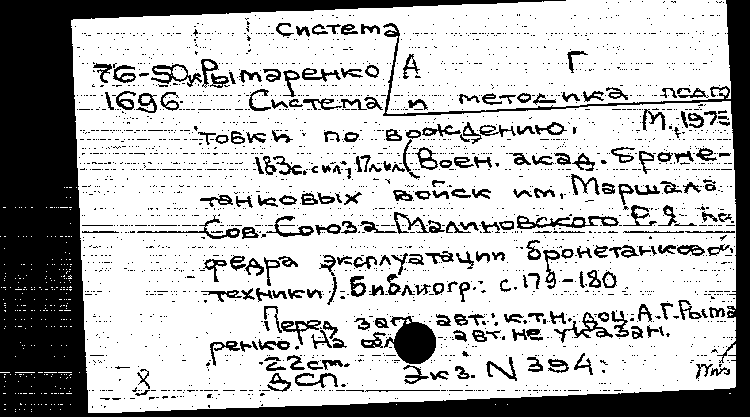 система
76-50к Рымаренко А Г
1696 Система и методика подго
товки по вождению. М., 1975
183с. сил.; 17л.ил. (Воен. акад. броне-
танковых войск им. Маршала
Сов. Союза Малиновского Р. Я. Ка
федра эксплуатации бронетанковой
техники). Библиогр.: с. 179-180
Перед загл. авт.: к.т.н. доц. А. Г. Рыма
ренко. На обл. авт. не указан.
22 ст.
8 ДСП. Экз. N 394: